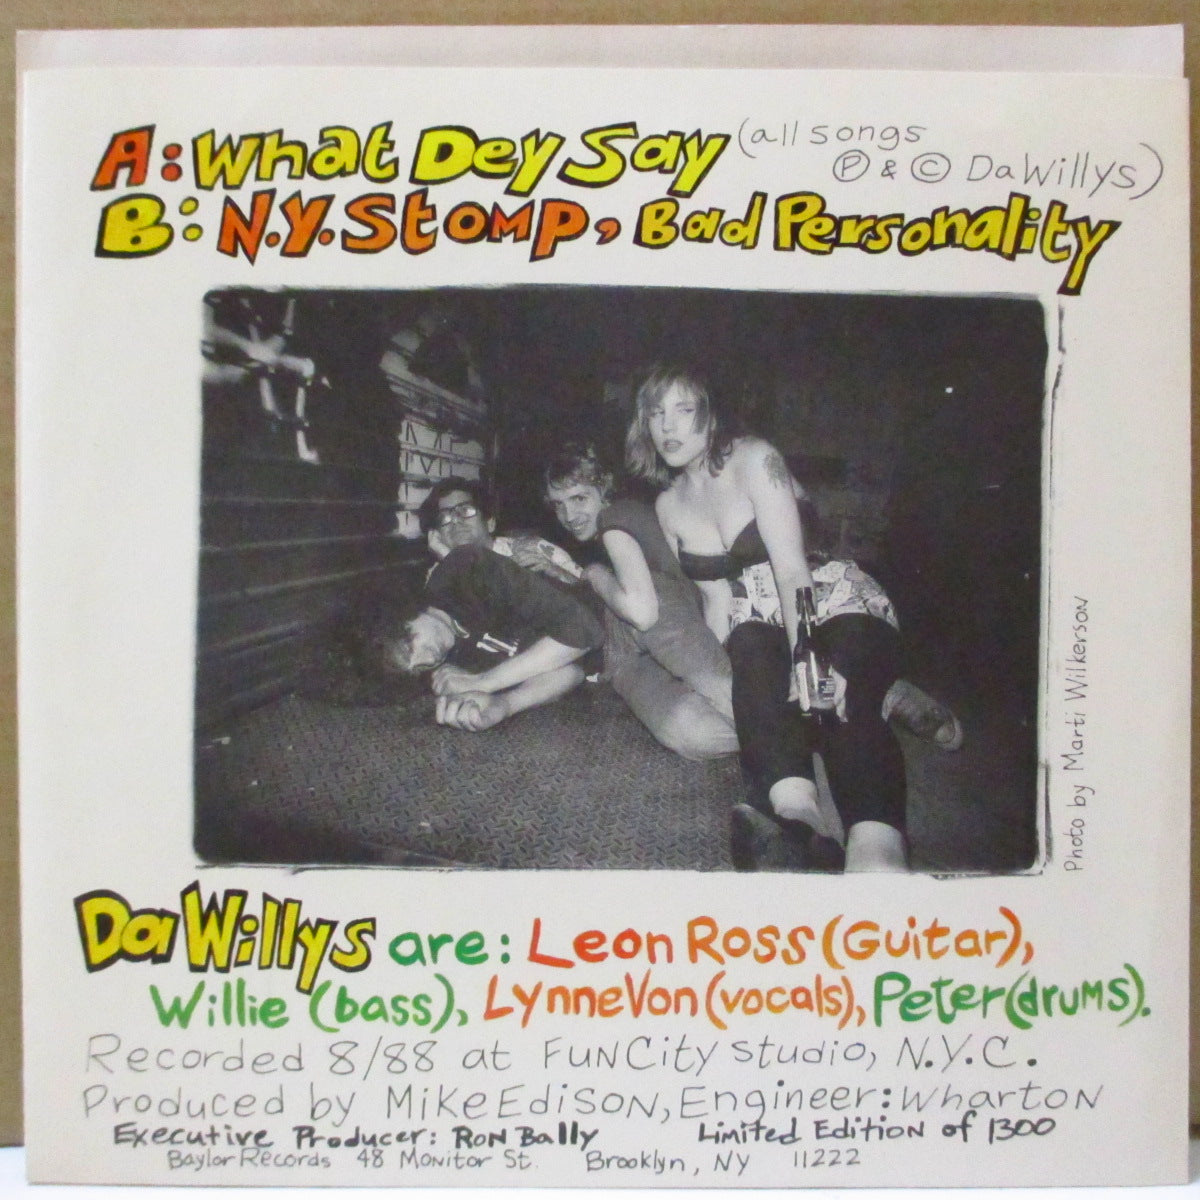 A: What Dey Say (all songs
Ⓟ & © Da Willys)
B: N.Y. Stomp, Bad Personality
Photo by Marti Wilkerson
Da Willys are: Leon Ross (Guitar),
Willie (bass), Lynne Von (vocals), Peter (drums).
Recorded 8/88 at Fun City Studio, N.Y.C.
Produced by Mike Edison, Engineer: Wharton
Executive Producer: Ron Bally Limited Edition of 1300
Baylor Records 48 Monitor St. Brooklyn, NY 11222